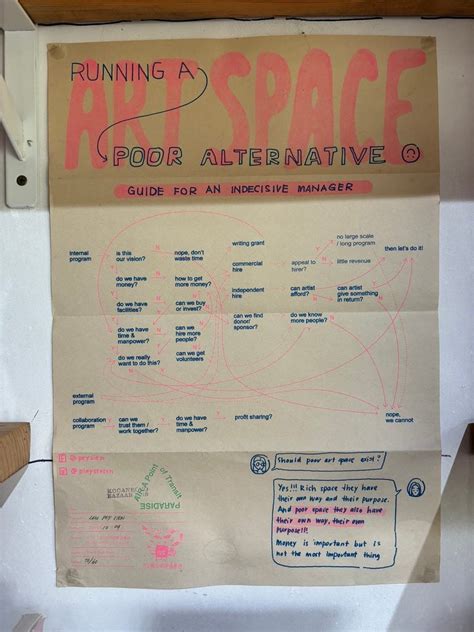 RUNNING A
ART SPACE
POOR ALTERNATIVE
GUIDE FOR AN INDECISIVE MANAGER
Internal
program
is this
our vision?
N
nope, don't
waste time
writing grant
no large scale
/ long program
then let's do it!
do we have
money?
how to get
more money?
commercial
hire
appeal to
hirer?
little revenue
do we have
facilities?
can we buy
or invest?
independent
hire
can artist
afford?
can artist
give something
in return?
do we have
time &
manpower?
can we
hire more
people?
can we find
donor/
sponsor?
do we know
more people?
do we really
want to do this?
can we get
volunteers
external
program
collaboration
program
can we
trust them /
work together?
do we have
time &
manpower?
profit sharing?
nope,
we cannot
Should poor art space exist?
Yes!!! Rich space they have
their own way and their purpose.
And poor space they also have
their own way, their own
purpose!!!
Money is important but is
not the most important thing
A Point of Transit
PARADISE